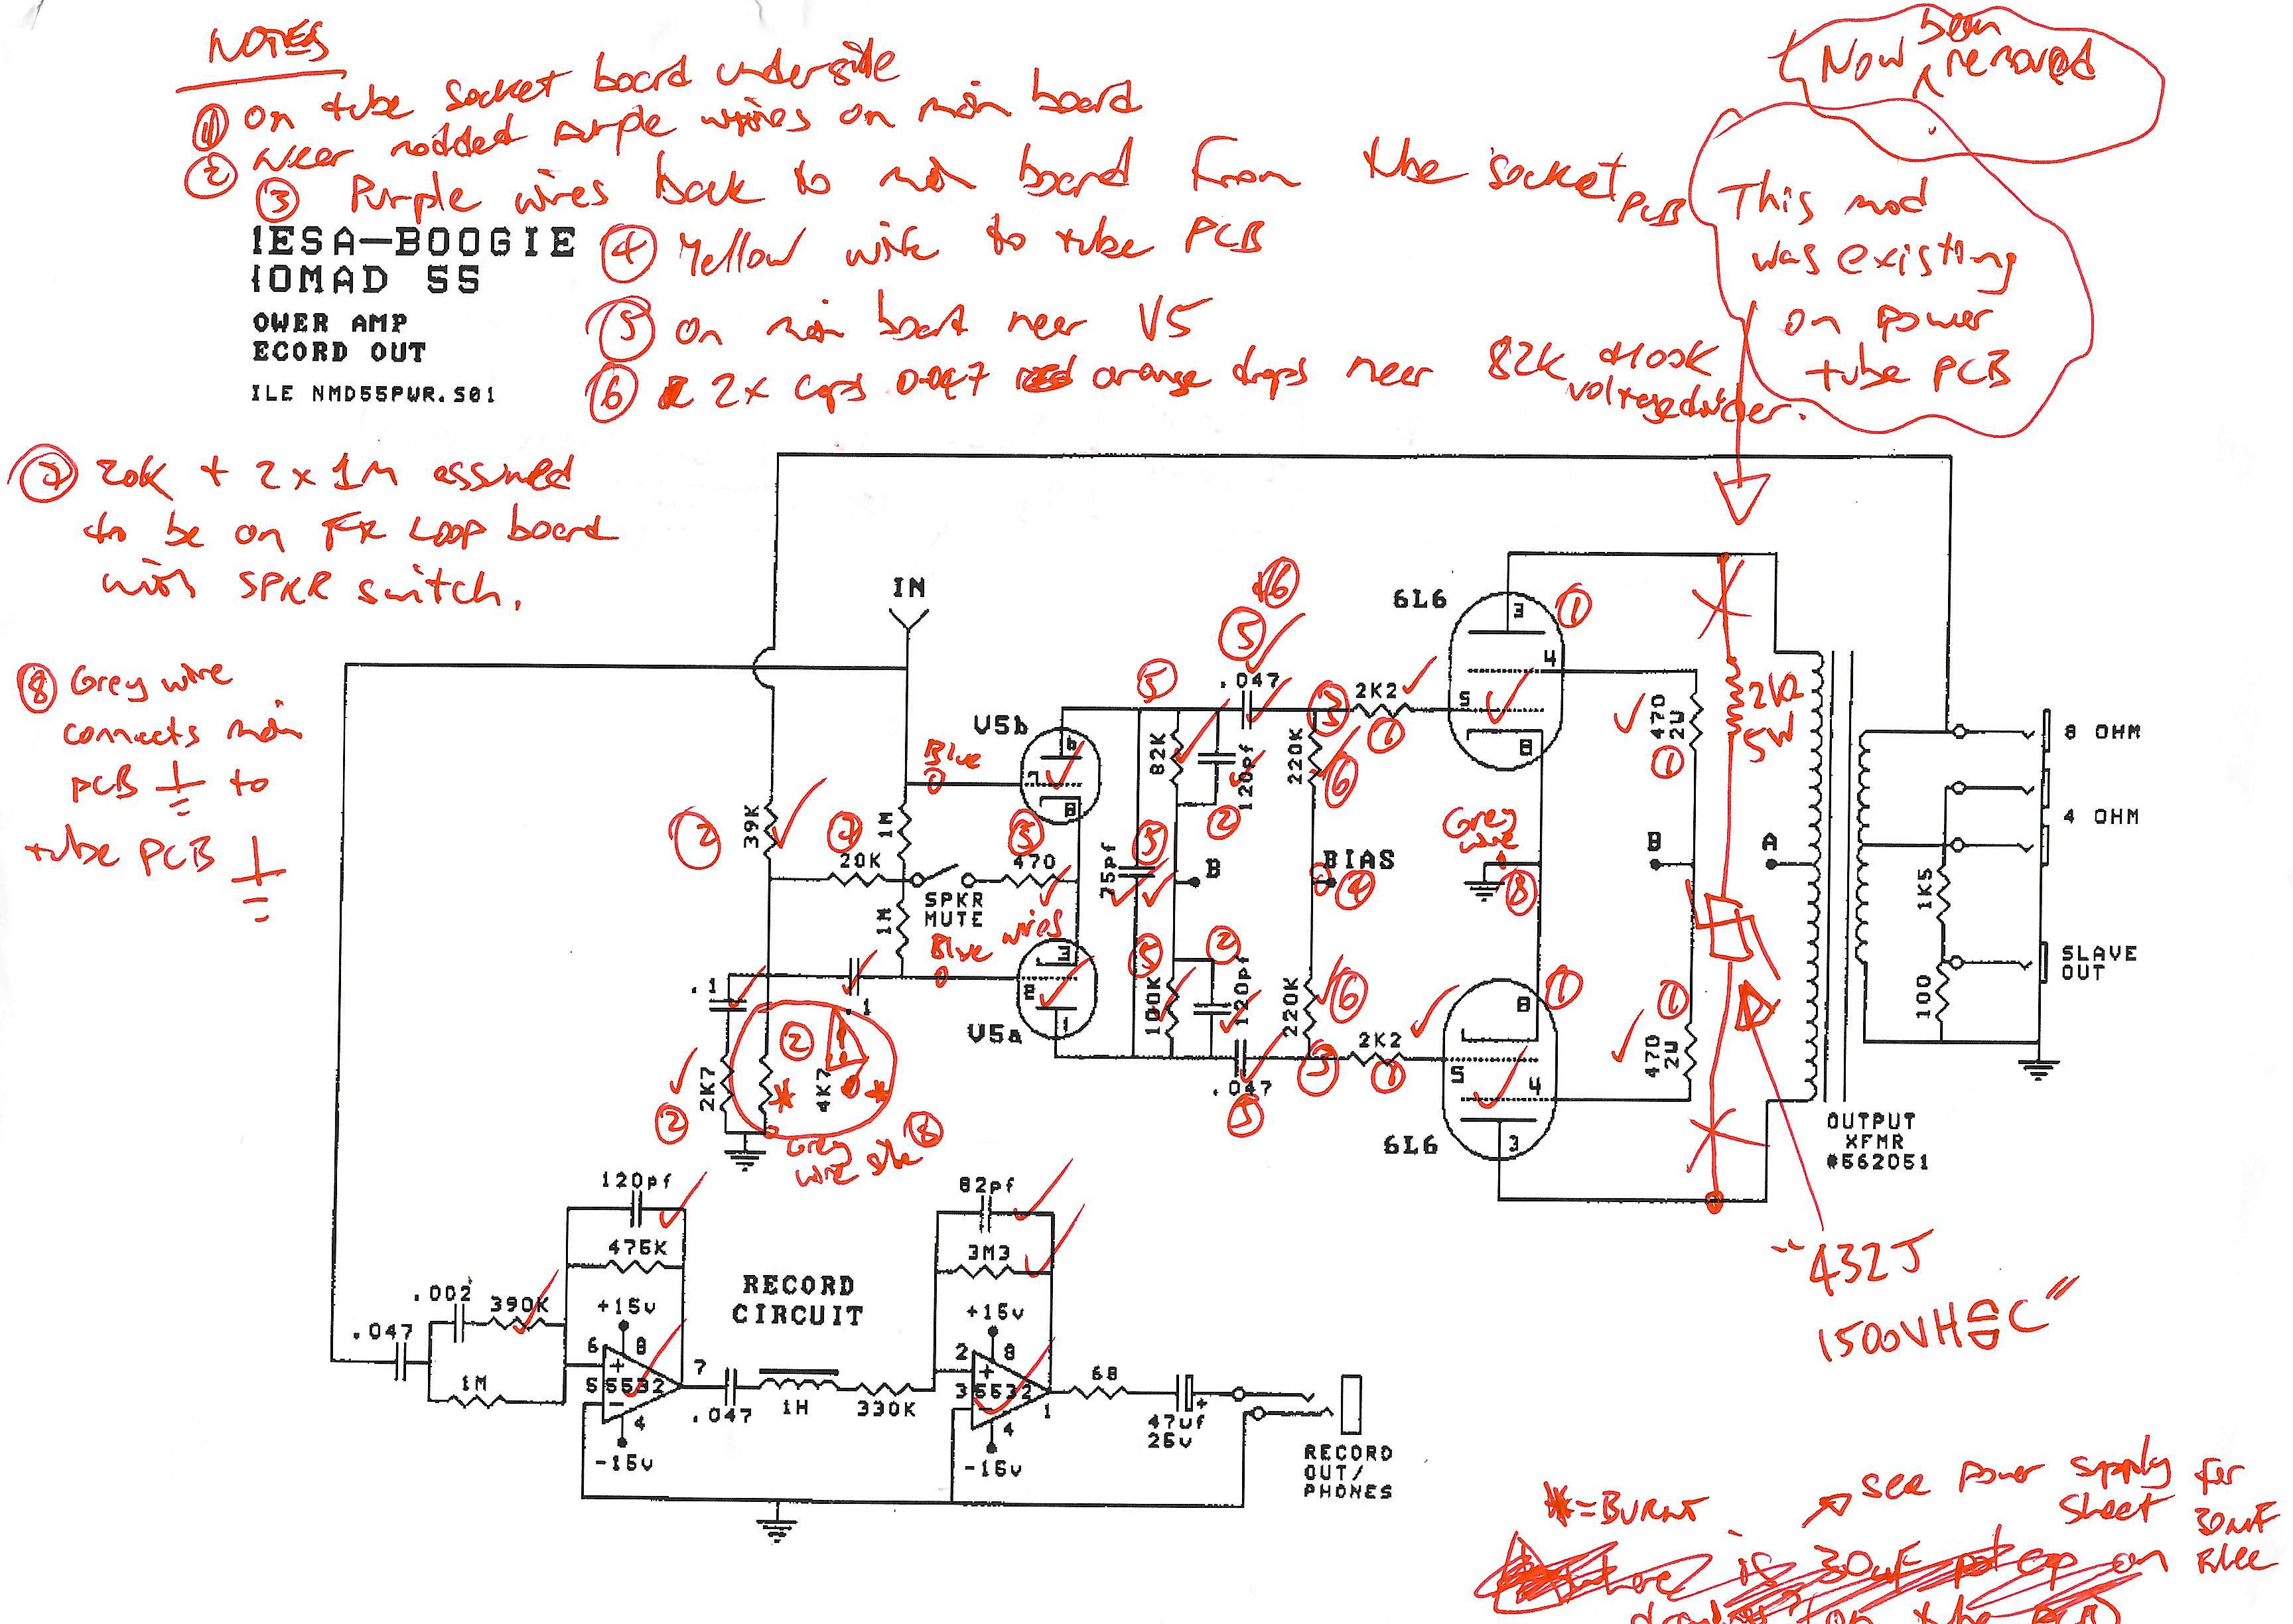 NOTES
① on tube socket board underside
② Near modded purple wires on main board
③ Purple wires back to main board from tube socket PCB
IESA-BOOGIE
IOMAD 55
OWER AMP
ECORD OUT
ILE NMD55PWR.S01
④ Yellow wire to tube PCB
⑤ on main board near V5
⑥ 2x caps 0.047 orange drops near 82K & 100K
voltage divider.
Now been removed
This mod
was existing
on power
tube PCB
⑦ 20K + 2 x 1M assumed
to be on FX Loop board
with SPKR switch.
⑧ Grey wire
connects main
PCB to
tube PCB
IN
6L6
①
3
4
5
8
+⑥
⑤
.047
⑤
③
2K2
①
470
2W
①
2KΩ
5W
V5b
6
7
8
Blue
82K
120pf
②
220K
⑥
8 OHM
4 OHM
②
39K
⑦
20K
1M
SPKR
MUTE
⑤
470
75pf
⑤
B
BIAS
④
Grey
wire
⑧
B
A
1K5
1M
Blue wires
3
2
1
V5a
⑤
②
100K
120pf
220K
⑥
①
8
5
4
3
6L6
①
470
2W
SLAVE
OUT
100
.1
.1
②
2K7
②
4K7
* *
Grey
wire side ⑧
.047
⑤
③
2K2
①
OUTPUT
XFMR
#562051
"432J
1500VH C"
120pf
475K
+15v
.002
390K
.047
1M
6
5
8
5532
4
7
-15v
RECORD
CIRCUIT
.047
1H
330K
82pf
3M3
+15v
2
3
8
5532
4
1
-15v
68
47uf
25v
RECORD
OUT/
PHONES
* = BURNT
see power supply for
sheet 30uF
is 30uF cap on
on tube PCB